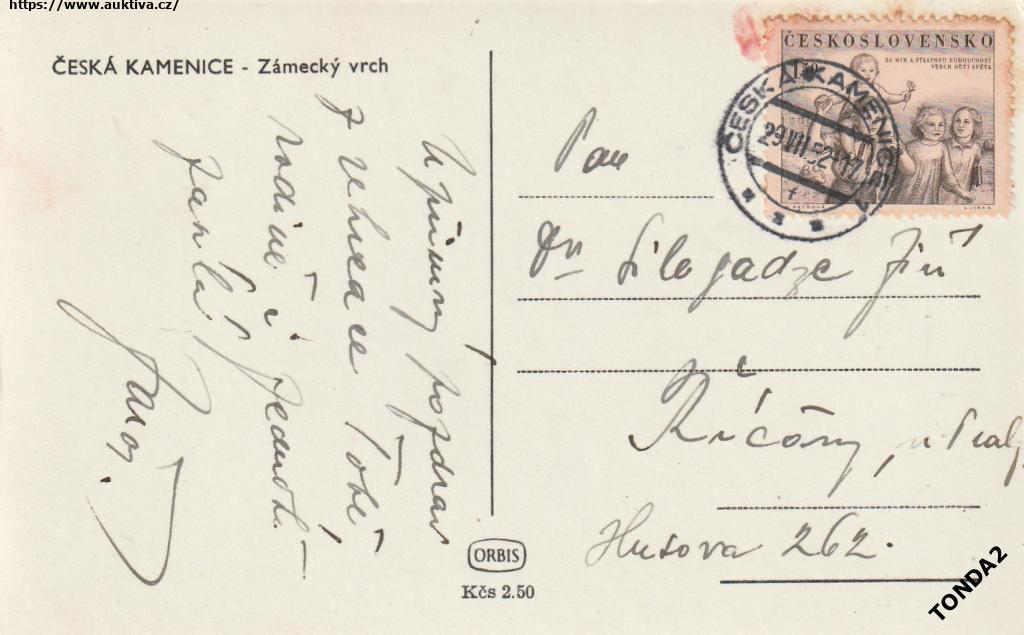 https://www.auktiva.cz/
ČESKÁ KAMENICE - Zámecký vrch
Upřímný pozdrav
z rekreace Tobě,
rodině i
Jarda
ČESKOSLOVENSKO
ZA MÍR A ŠŤASTNOU BUDOUCNOST
VŠECH DĚTÍ SVĚTA
ČESKÁ KAMENICE
29.VII.52-17
Pan
Dr Silogadze Jiří
Říčany, u Prahy
Husova 262.
ORBIS
Kčs 2.50
TONDA2